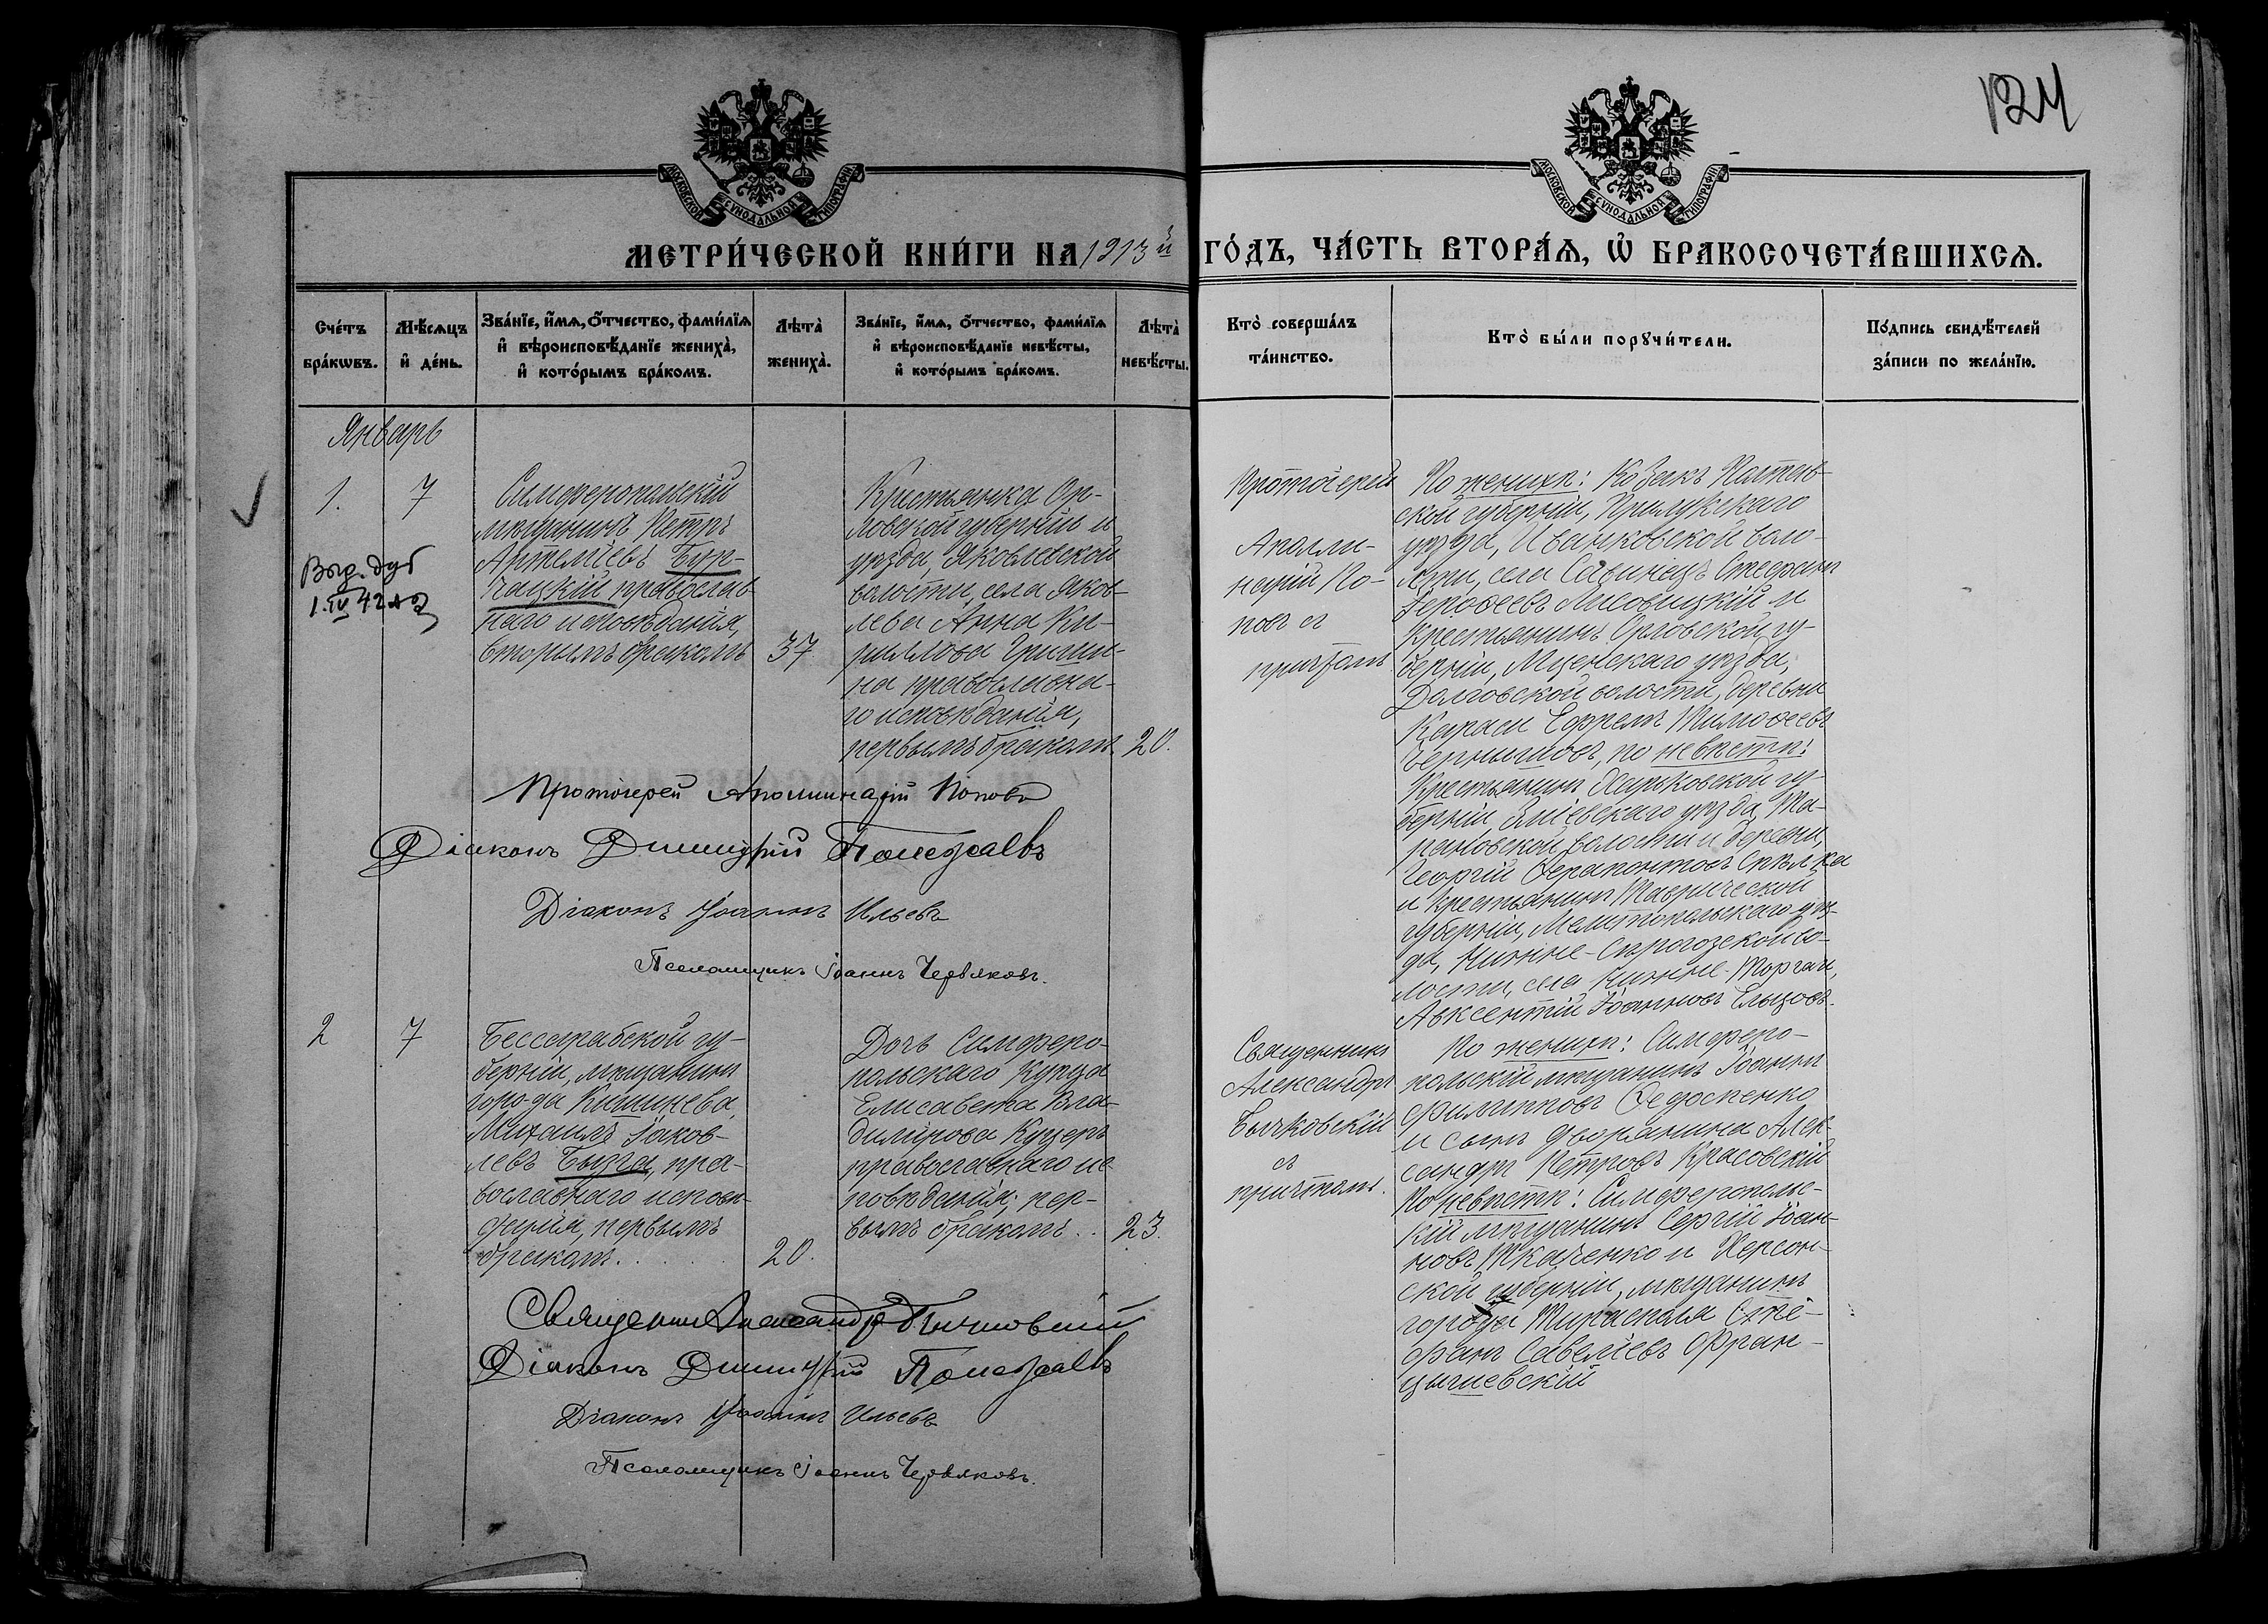 124
МОСКОВСКОЙ СѴНОДАЛЬНОЙ ТИПОГРАФІИ
МОСКОВСКОЙ СѴНОДАЛЬНОЙ ТИПОГРАФІИ
МЕТРИ́ЧЕСКОЙ КНИ́ГИ НА 1913й ГО́ДЪ, ЧА́СТЬ ВТОРА́Ѧ, Ѡ҆ БРАКОСОЧЕТА́ВШИХСѦ.
Сче́тъ
бра́кѡвъ.
Мѣ́сѧцъ
и҆ де́нь.
Зва́нїе, и҆́мѧ, ѻ҆́тчество, фами́лїѧ
и҆ вѣроисповѣ́данїе жениха̀,
и҆ кото́рымъ бра́комъ.
Лѣта̀
жениха̀.
Зва́нїе, и҆́мѧ, ѻ҆́тчество, фами́лїѧ
и҆ вѣроисповѣ́данїе невѣ́сты,
и҆ кото́рымъ бра́комъ.
Лѣта̀
невѣ́сты.
Кто̀ соверша́лъ
та́инство.
Кто̀ бы́ли порꙋчи́тели.
По́дпись свидѣ́телей
за́писи по жела́нїю.
Январь
1.
7
Выд. дуб
1.IV 42
Симферопольскій
мѣщанинъ Петръ
Артеміевъ Бур-
чацкій православ-
наго исповѣданія,
вторымъ бракомъ
37
Крестьянка Ор-
ловской губерніи и
уѣзда, Яковлевской
волости, села Яков-
лева Анна Ки-
риллова Гришина
православна-
го исповѣданія,
первымъ бракомъ.
20.
Протоіерей
Аполли-
нарій По-
повъ съ
причтомъ
По женихѣ: Козакъ Полтав-
ской губерніи, Прилукскаго
уѣзда, Иваньковской воло-
сти, села Савинецъ Стефанъ
Лисовицкій и
Крестьянинъ Орловской гу-
берніи, Мценскаго уѣзда,
Долговской волости, деревни
Караси Ефремъ Тимофеевъ
Чернышовъ, по невѣстѣ:
Крестьянинъ Харьковской гу-
берніи Зміевскаго уѣзда, Та-
рановской волости и деревни,
Георгій Ѳерапонтовъ Спѣлка
и Крестьянинъ Таврической
губерніи, Мелитопольскаго уѣз-
да, Нижне-Сѣрогозской во-
лости, села Нижне-Торгаи,
Авксентій Іоанновъ Ельцовъ.
Протоіерей Аполлинарій Поповъ
Діаконъ Димитрій
Діаконъ Іоаннъ Ильевъ
Псаломщикъ Іоаннъ Червяковъ.
2
7
Бессарабской гу-
берніи, мѣщанинъ
города Кишинева,
Михаилъ Іаков-
левъ Бызга, пра-
вославнаго исповѣ-
данія, первымъ
бракомъ.
20.
Дочь Симферо-
польскаго Купца
Елисавета Вла-
димірова Куцеръ
православнаго ис-
повѣданія, пер-
вымъ бракомъ..
23.
Священникъ
Александръ
Бычковскій
съ
причтомъ.
По женихѣ: Симферо-
польскій мѣщанинъ Іоаннъ
Филипповъ Ѳедосенко
и сынъ дворянина Алек-
сандръ Петровъ Красовскій
По невѣстѣ: Симферопольс-
кій мѣщанинъ Сергій Іоан-
новъ Ткаченко и Херсон-
ской губерніи, мѣщанинъ
города Тирасполя Сте-
фанъ Савеліевъ Фран-
цышевскій
Священникъ Александръ Бычковскій
Діаконъ Димитрій
Діаконъ Іоаннъ Ильевъ
Псаломщикъ Іоаннъ Червяковъ.